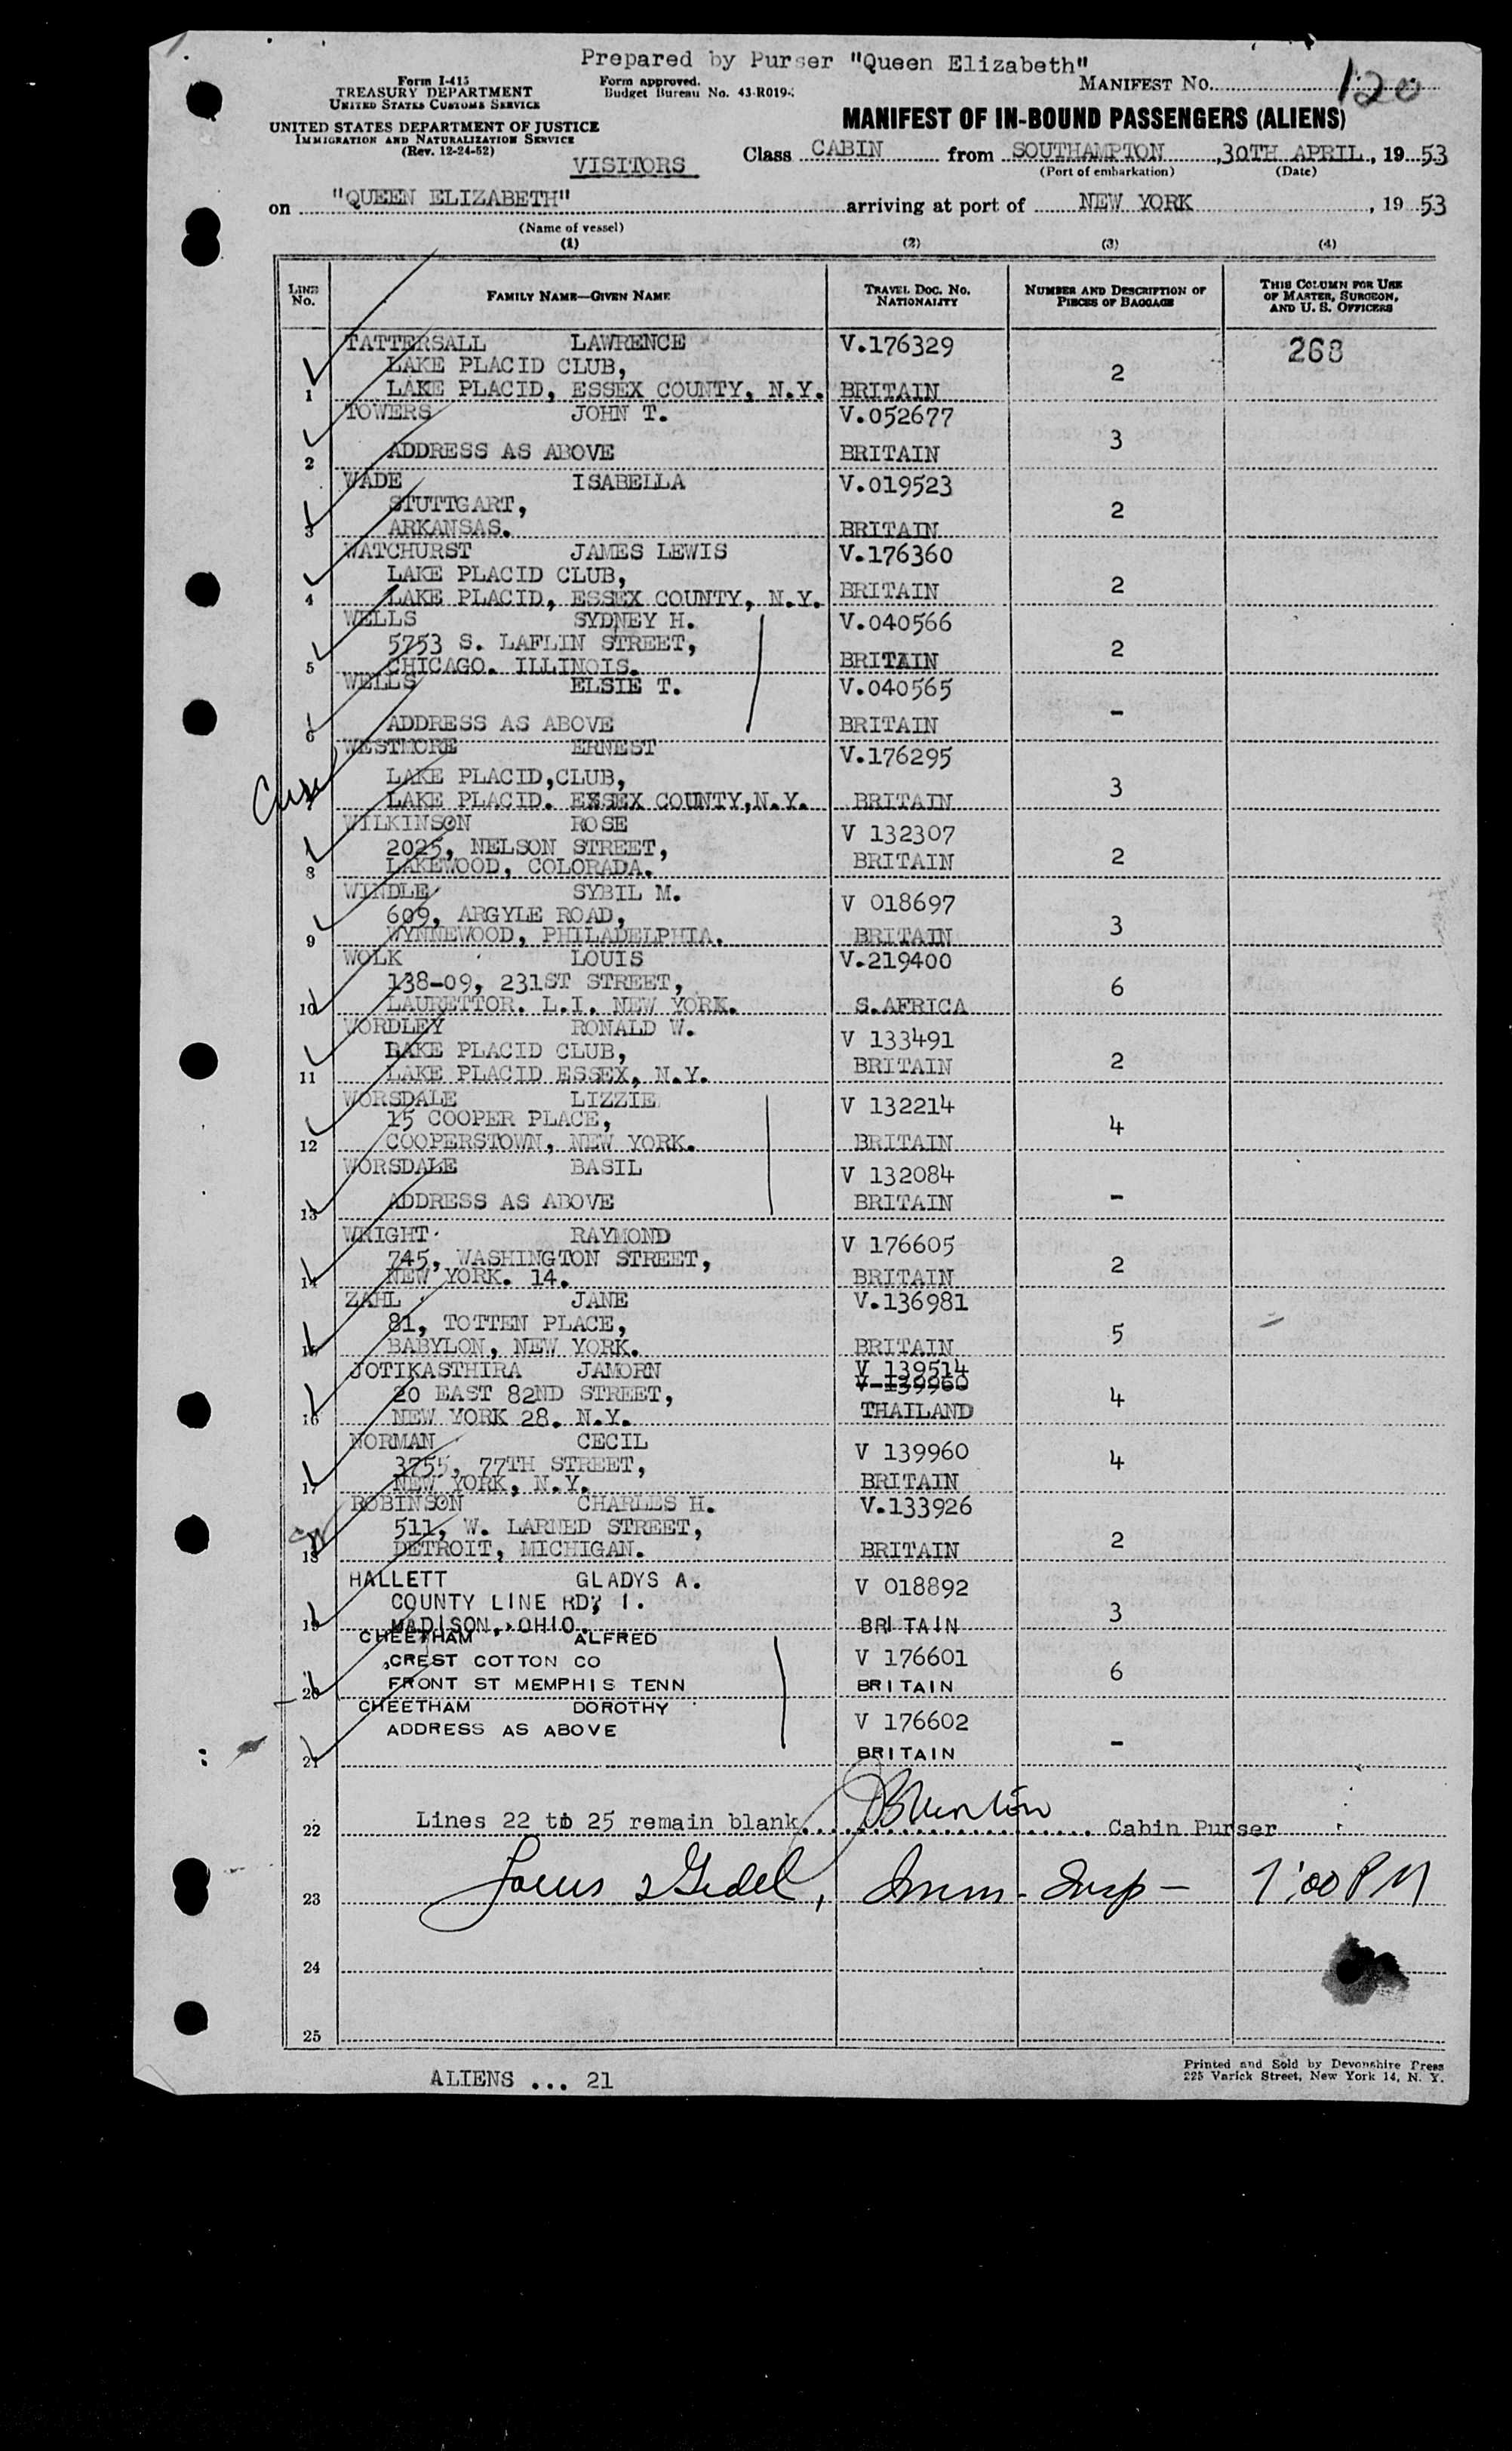 Prepared by Purser "Queen Elizabeth"
Form I-415
TREASURY DEPARTMENT
UNITED STATES CUSTOMS SERVICE
Form approved.
Budget Bureau No. 43-R019-
MANIFEST NO. 120
UNITED STATES DEPARTMENT OF JUSTICE
IMMIGRATION AND NATURALIZATION SERVICE
(Rev. 12-24-52)
MANIFEST OF IN-BOUND PASSENGERS (ALIENS)
VISITORS
Class CABIN from SOUTHAMPTON, 30TH APRIL, 1953
(Port of embarkation) (Date)
on "QUEEN ELIZABETH" arriving at port of NEW YORK, 1953
(Name of vessel)
(1) (2) (3) (4)
LINE No. FAMILY NAME—GIVEN NAME TRAVEL DOC. NO. NATIONALITY NUMBER AND DESCRIPTION OF PIECES OF BAGGAGE THIS COLUMN FOR USE OF MASTER, SURGEON, AND U. S. OFFICERS
TATTERSALL LAWRENCE V.176329 268
LAKE PLACID CLUB, 2
1 LAKE PLACID, ESSEX COUNTY, N.Y. BRITAIN
TOWERS JOHN T. V.052677
3
2 ADDRESS AS ABOVE BRITAIN
WADE ISABELLA V.019523
STUTTGART, 2
3 ARKANSAS. BRITAIN
WATCHURST JAMES LEWIS V.176360
LAKE PLACID CLUB, 2
4 LAKE PLACID, ESSEX COUNTY, N.Y. BRITAIN
WELLS SYDNEY H. V.040566
5753 S. LAFLIN STREET, 2
5 CHICAGO. ILLINOIS. BRITAIN
WELLS ELSIE T. V.040565
-
6 ADDRESS AS ABOVE BRITAIN
WESTMORE ERNEST V.176295
LAKE PLACID,CLUB, 3
LAKE PLACID. ESSEX COUNTY,N.Y. BRITAIN
WILKINSON ROSE V 132307
2025, NELSON STREET, 2
8 LAKEWOOD, COLORADA. BRITAIN
WINDLE SYBIL M. V 018697
609, ARGYLE ROAD, 3
9 WYNNEWOOD, PHILADELPHIA. BRITAIN
WOLK LOUIS V.219400
138-09, 231ST STREET, 6
10 LAURETTOR. L.I. NEW YORK. S.AFRICA
WORDLEY RONALD W. V 133491
LAKE PLACID CLUB, 2
11 LAKE PLACID ESSEX, N.Y. BRITAIN
WORSDALE LIZZIE V 132214
15 COOPER PLACE, 4
12 COOPERSTOWN, NEW YORK. BRITAIN
WORSDALE BASIL V 132084
-
13 ADDRESS AS ABOVE BRITAIN
WRIGHT RAYMOND V 176605
745, WASHINGTON STREET, 2
14 NEW YORK. 14. BRITAIN
ZAHL JANE V.136981
81, TOTTEN PLACE, 5
15 BABYLON, NEW YORK. BRITAIN
JOTIKASTHIRA JAMORN V 139514
V-139960
20 EAST 82ND STREET, 4
16 NEW YORK 28. N.Y. THAILAND
NORMAN CECIL V 139960
3755, 77TH STREET, 4
17 NEW YORK, N.Y. BRITAIN
ROBINSON CHARLES H. V.133926
511, W. LARNED STREET, 2
18 DETROIT, MICHIGAN. BRITAIN
HALLETT GLADYS A. V 018892
COUNTY LINE RD, 1. 3
19 MADISON, OHIO. BRITAIN
CHEETHAM ALFRED V 176601
CREST COTTON CO 6
20 FRONT ST MEMPHIS TENN BRITAIN
CHEETHAM DOROTHY V 176602
ADDRESS AS ABOVE -
21 BRITAIN
22 Lines 22 to 25 remain blank Cabin Purser
23 Imm. Insp - 1:00 PM
24
25
ALIENS ... 21
Printed and Sold by Devonshire Press
225 Varick Street, New York 14, N. Y.